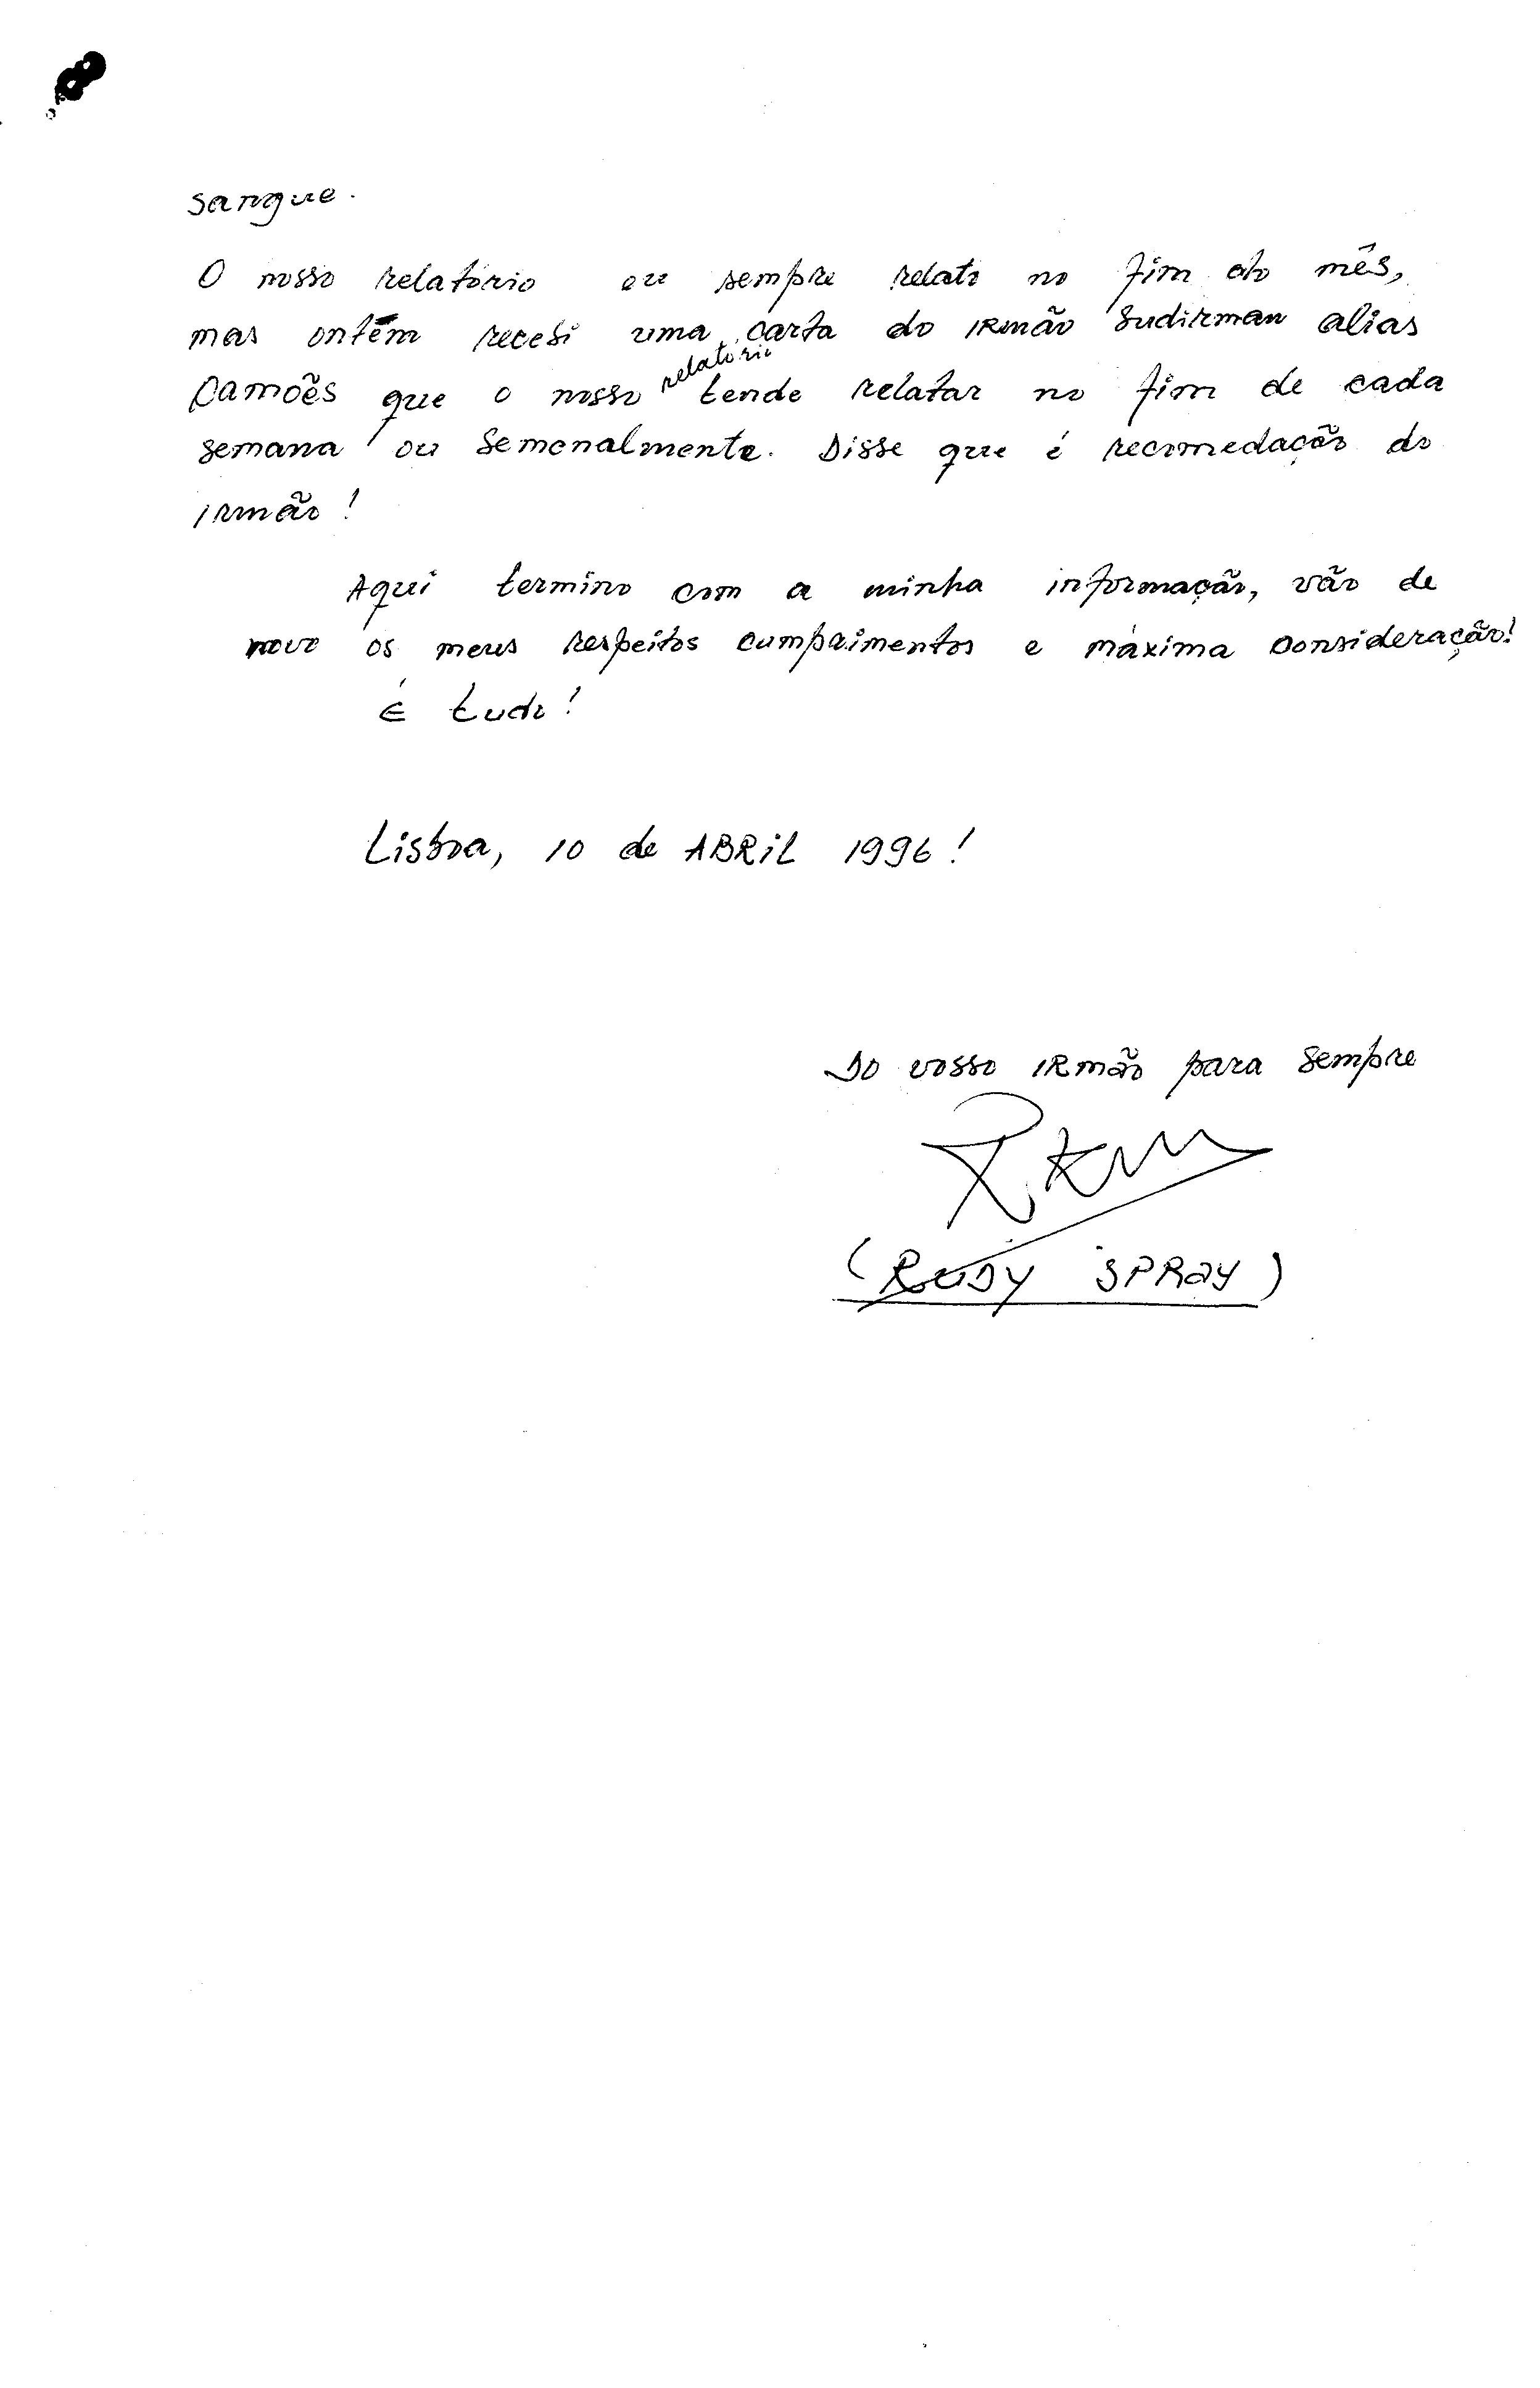 sangue.
O nosso relatório eu sempre relato no fim do mês,
mas ontém recebi uma carta do IRmão Sudirman alias
Camões que o nosso relatorio tende relatar no fim de cada
semana ou Semenalmente. Disse que é recomedação do
IRmão!
Aqui termino com a minha informação, vão de
novo os meus respeitos cumprimentos e máxima consideração!
É tudo!
Lisboa, 10 de ABRiL 1996!
Do vosso IRmão para sempre
(RUDY SPRAY)